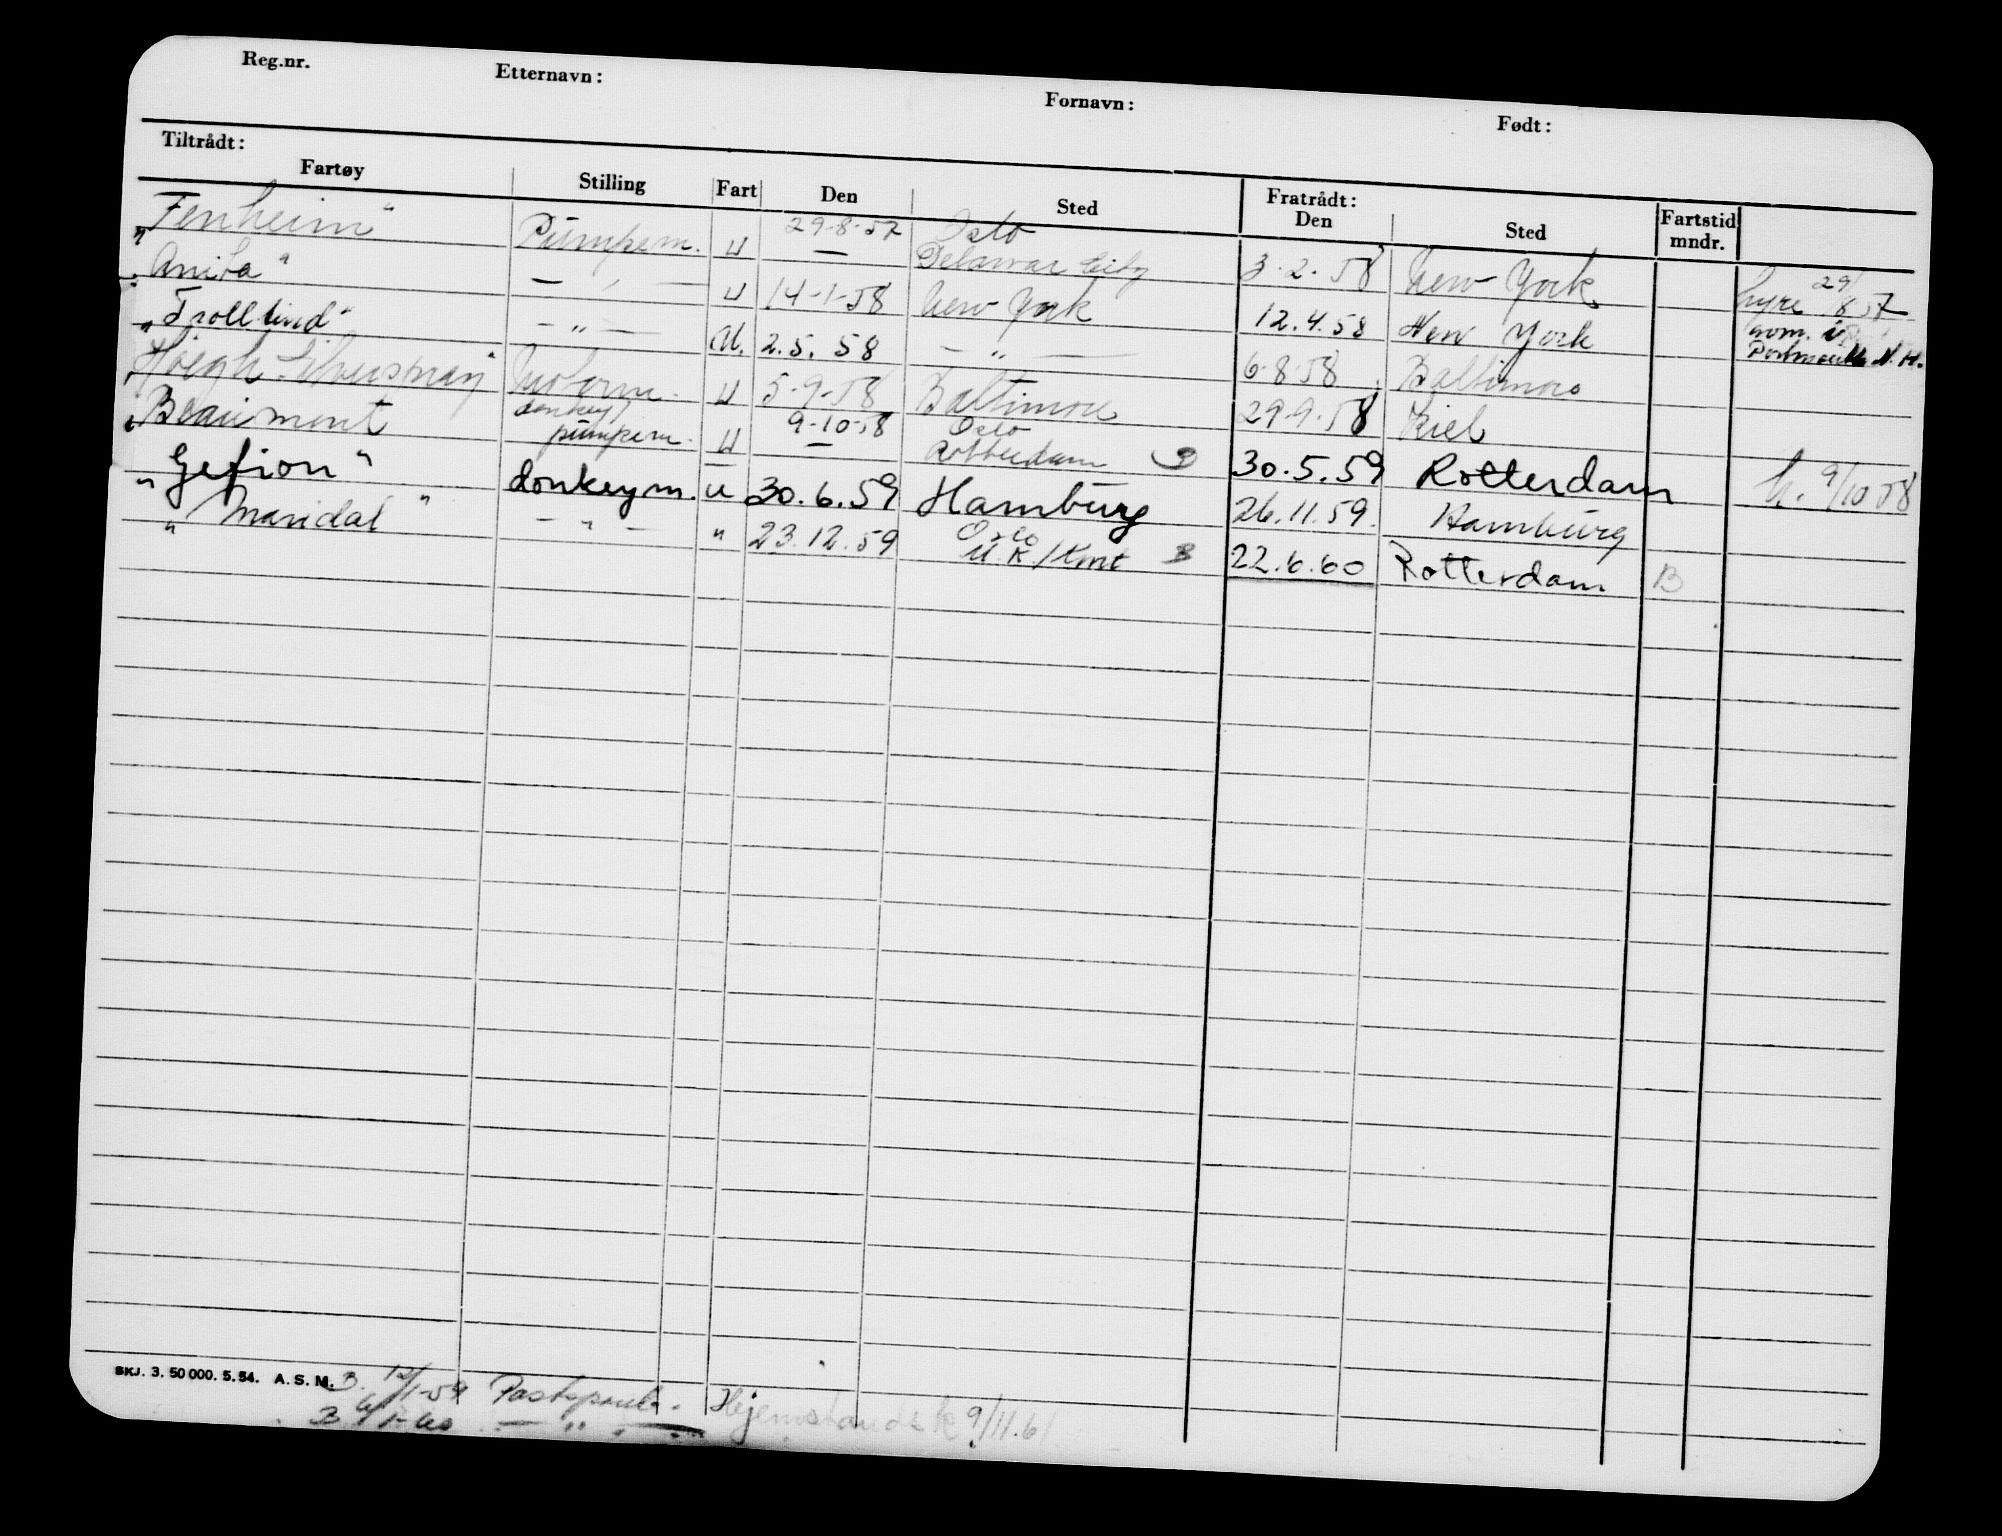 Reg.nr. Etternavn: Fornavn: Født:
Tiltrådt: Fratrådt:
Fartøy Stilling Fart Den Sted Den Sted Fartstid mndr.
„Fenheim" Pumpem. U 29-8-57 — Oslo Delawar City 3.2.58 New York hyre 29/8 57
„Anita" — " — U 14-1-58 New York 12.4.58 New York mom. i Portsmouth N.H.
„Trollvind" — " — U. 2.5.58 — " — 6-8-58 Baltimore
Høegh Silverspray Motorm. U 5-9-58 Baltimore 29.9.58 Kiel
„Beaumont donkey pumpem. U 9-10-58 — Oslo Rotterdam 30.5.59 Rotterdam h. 9/10 58
„Gefion" donkeym. U 30.6.59 Hamburg 26.11.59. Hamburg
„Maridal" — " — " 23.12.59 Oslo U.K/Knt B 22.6.60 Rotterdam B
SKJ. 3. 50 000. 5. 54. A. S. M. B. 12/1-59 Hjemstands k 9/11.61
B 6/1-60 — " —